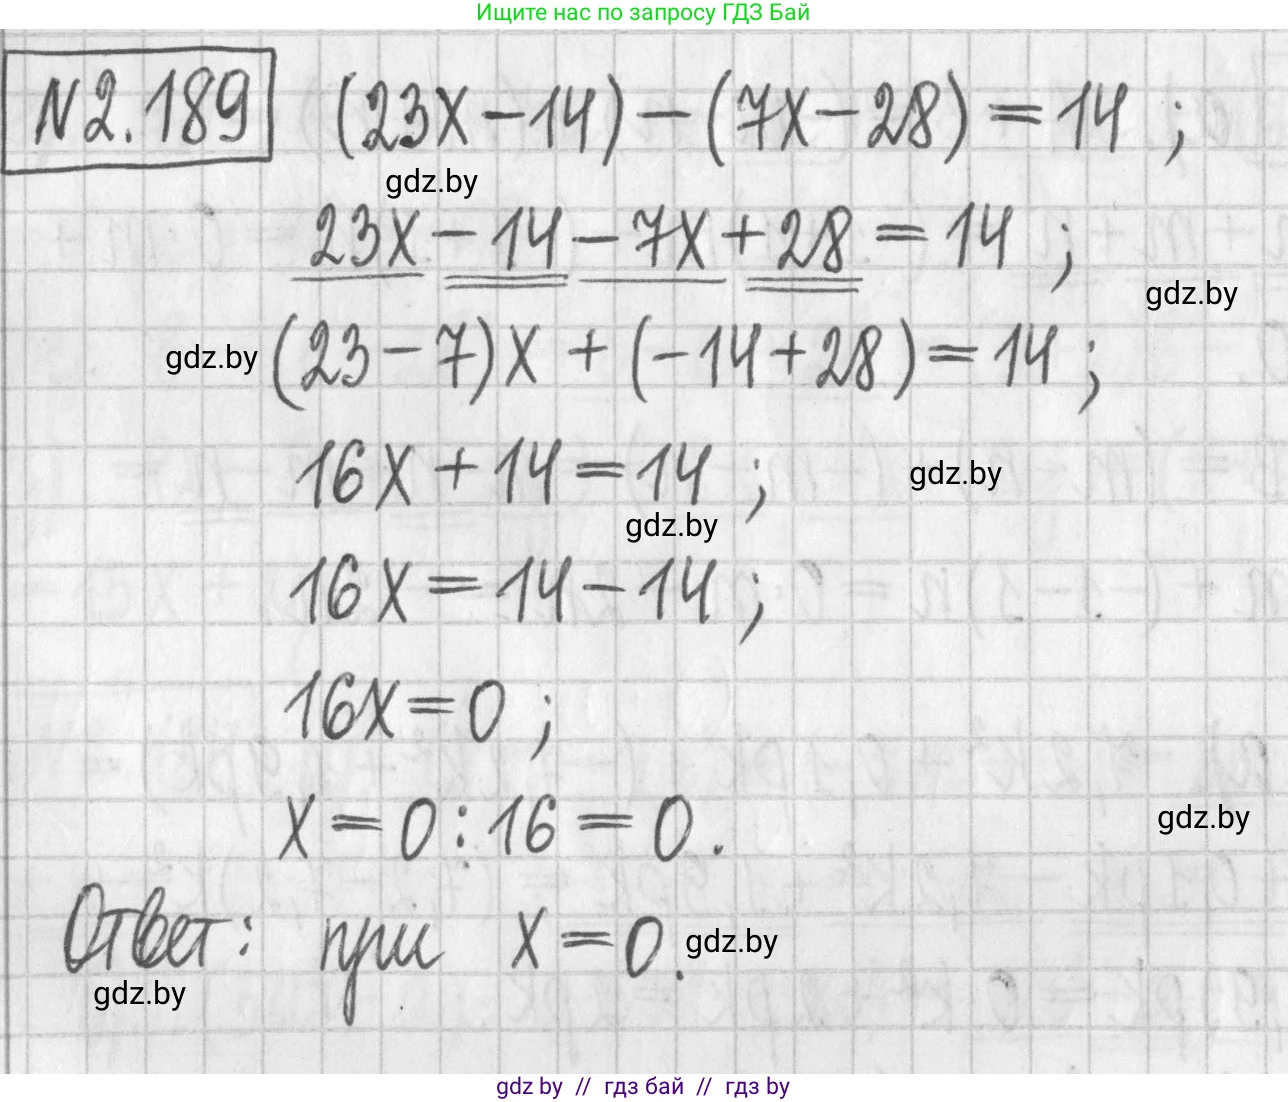 Ищите нас по запросу ГДЗ Бай
N2.189 (23x-14)-(7x-28)=14 ;
gdz.by
23x-14-7x+28=14 ;
gdz.by
gdz.by (23-7)x+(-14+28)=14 ;
16x+14=14 ; gdz.by
gdz.by
16x=14-14 ;
16x=0 ;
x=0:16=0. gdz.by
Ответ: при x=0. gdz.by
gdz.by
gdz by // гдз бай // гдз by